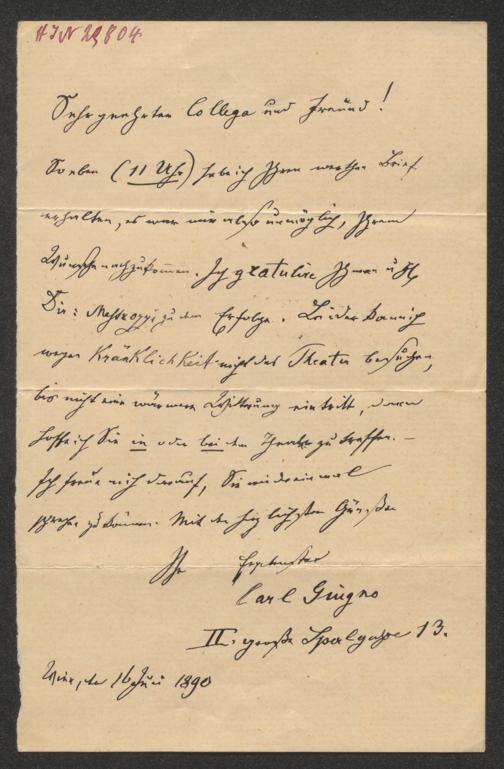 HIN 29804
Sehr geehrter Collega und Freund!
Soeben (11 Uhr) habe ich Ihren werthen Brief
erhalten, es war mir also unmöglich, Ihrem
Wunsche nachzukommen. Ich gratulire Ihnen u H
Dir: zu dem Erfolge. Leider kann ich
wegen Kränklichkeit nicht das Theater besuchen,
bis nicht eine wärmere Witterung eintritt, dann
hoffe ich Sie in oder bei dem Theater zu treffen. —
Ich freue mich darauf, Sie wieder einmal
sprechen zu können. Mit den herzlichsten Grüßen
Ihr Ergebenster
Carl Giugno
II. große Sperlgasse 13.
Wien, den 16 Juni 1890